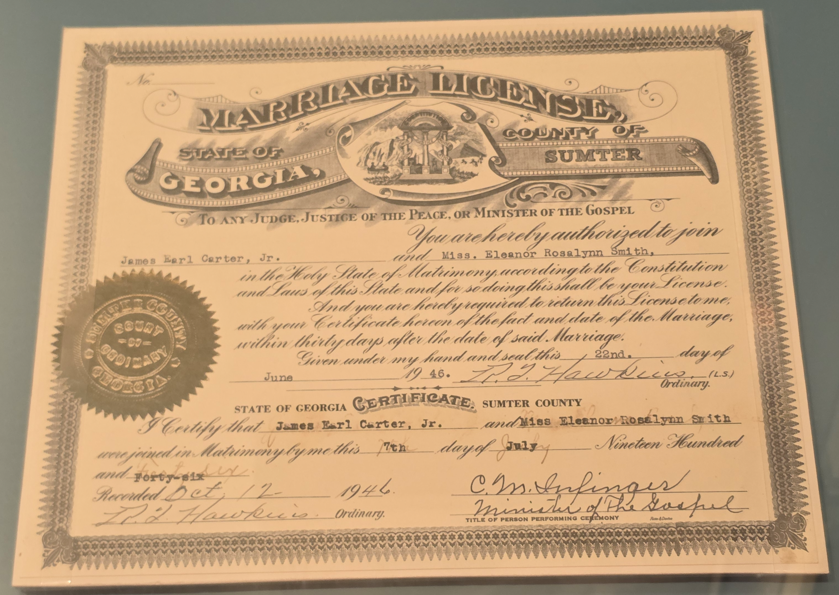 No.
MARRIAGE LICENSE,
STATE OF GEORGIA,
COUNTY OF SUMTER
TO ANY JUDGE, JUSTICE OF THE PEACE, OR MINISTER OF THE GOSPEL
You are hereby authorized to join
James Earl Carter, Jr. and Miss. Eleanor Rosalynn Smith,
in the Holy State of Matrimony, according to the Constitution
and Laws of this State and for so doing this shall be your License.
And you are hereby required to return this License to me,
with your Certificate hereon of the fact and date of the Marriage,
within thirty days after the date of said Marriage.
Given under my hand and seal this 22nd. day of
June 1946. (L.S.)
Ordinary.
SUMTER COUNTY
COURT
OF
ORDINARY
GEORGIA.
STATE OF GEORGIA CERTIFICATE, SUMTER COUNTY
I Certify that James Earl Carter, Jr. and Miss Eleanor Rosalynn Smith
were joined in Matrimony by me this 7th day of July Nineteen Hundred
and Forty-six
Recorded Oct 12 1946. C. M. Infinger
Ordinary. Minister of The Gospel
TITLE OF PERSON PERFORMING CEREMONY